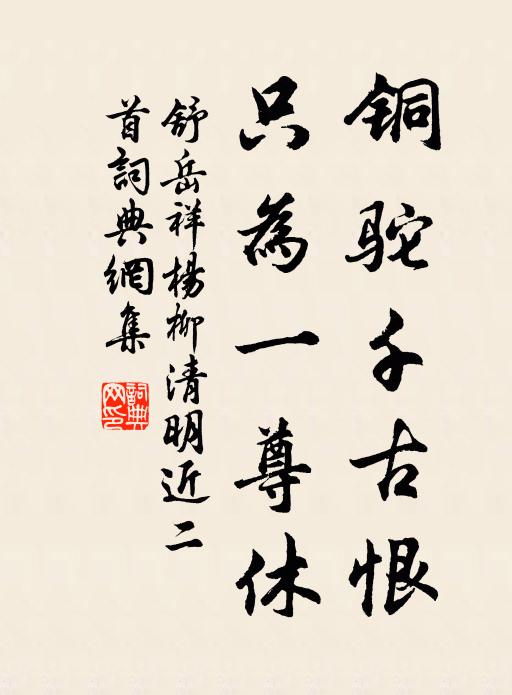 铜驼千古恨
只為一尊休
舒岳祥楊柳清明近二
首詞典網集
詞典
网印